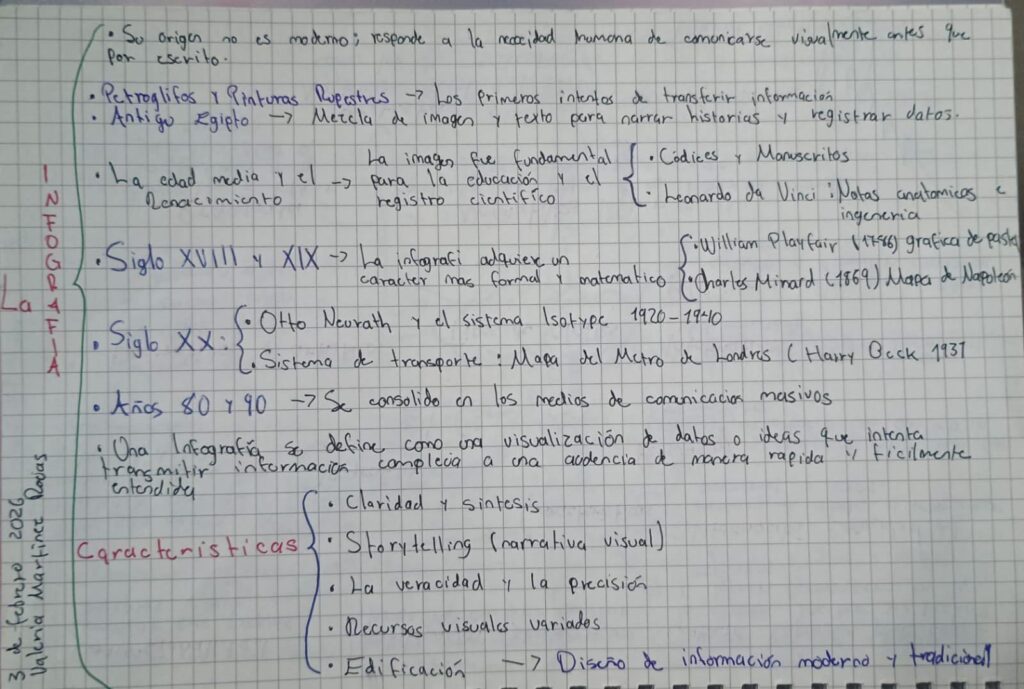 La
INFOGRAFIA
• Su origen no es moderno; responde a la necocidad humana de comunicarse visualmente antes que
por escrito.
• Petroglifos y Pinturas Rupestres → Los primeros intentos de transferir información
• Antigo Egipto → Mezcla de imagen y texto para narrar historias y registrar datos.
• La edad media y el → La imagen fue fundamental
Renacimiento para la educación y el
registro científico
• Códices y Manuscritos
• Leonardo da Vinci : Notas anatomicas e
ingeneria
• Siglo XVIII y XIX → La infografi adquiere un
caracter mas formal y matematico
• William Playfair (1786) grafica de pastel
• Charles Minard (1869) Mapa de Napoleón
• Siglo XX:
• Otto Neurath y el sistema Isotype 1920-1940
• Sistema de transporte : Mapa del Metro de Londres (Harry Beck 1931
• Años 80 y 90 → Se consolido en los medios de comunicacion masivos
• Una Infografía se define como una visualización de datos o ideas que intenta
transmitir informacion compleja a una audencia de manera rapida y ficilmente
entendida
Caracteristicas
• Claridad y sintesis
• Storytelling (narrativa visual)
• La veracidad y la precisión
• Recursos visuales variados
• Edificación → Diseño de información moderno y tradicional
3 de febrero 2026
Valeria Martinez